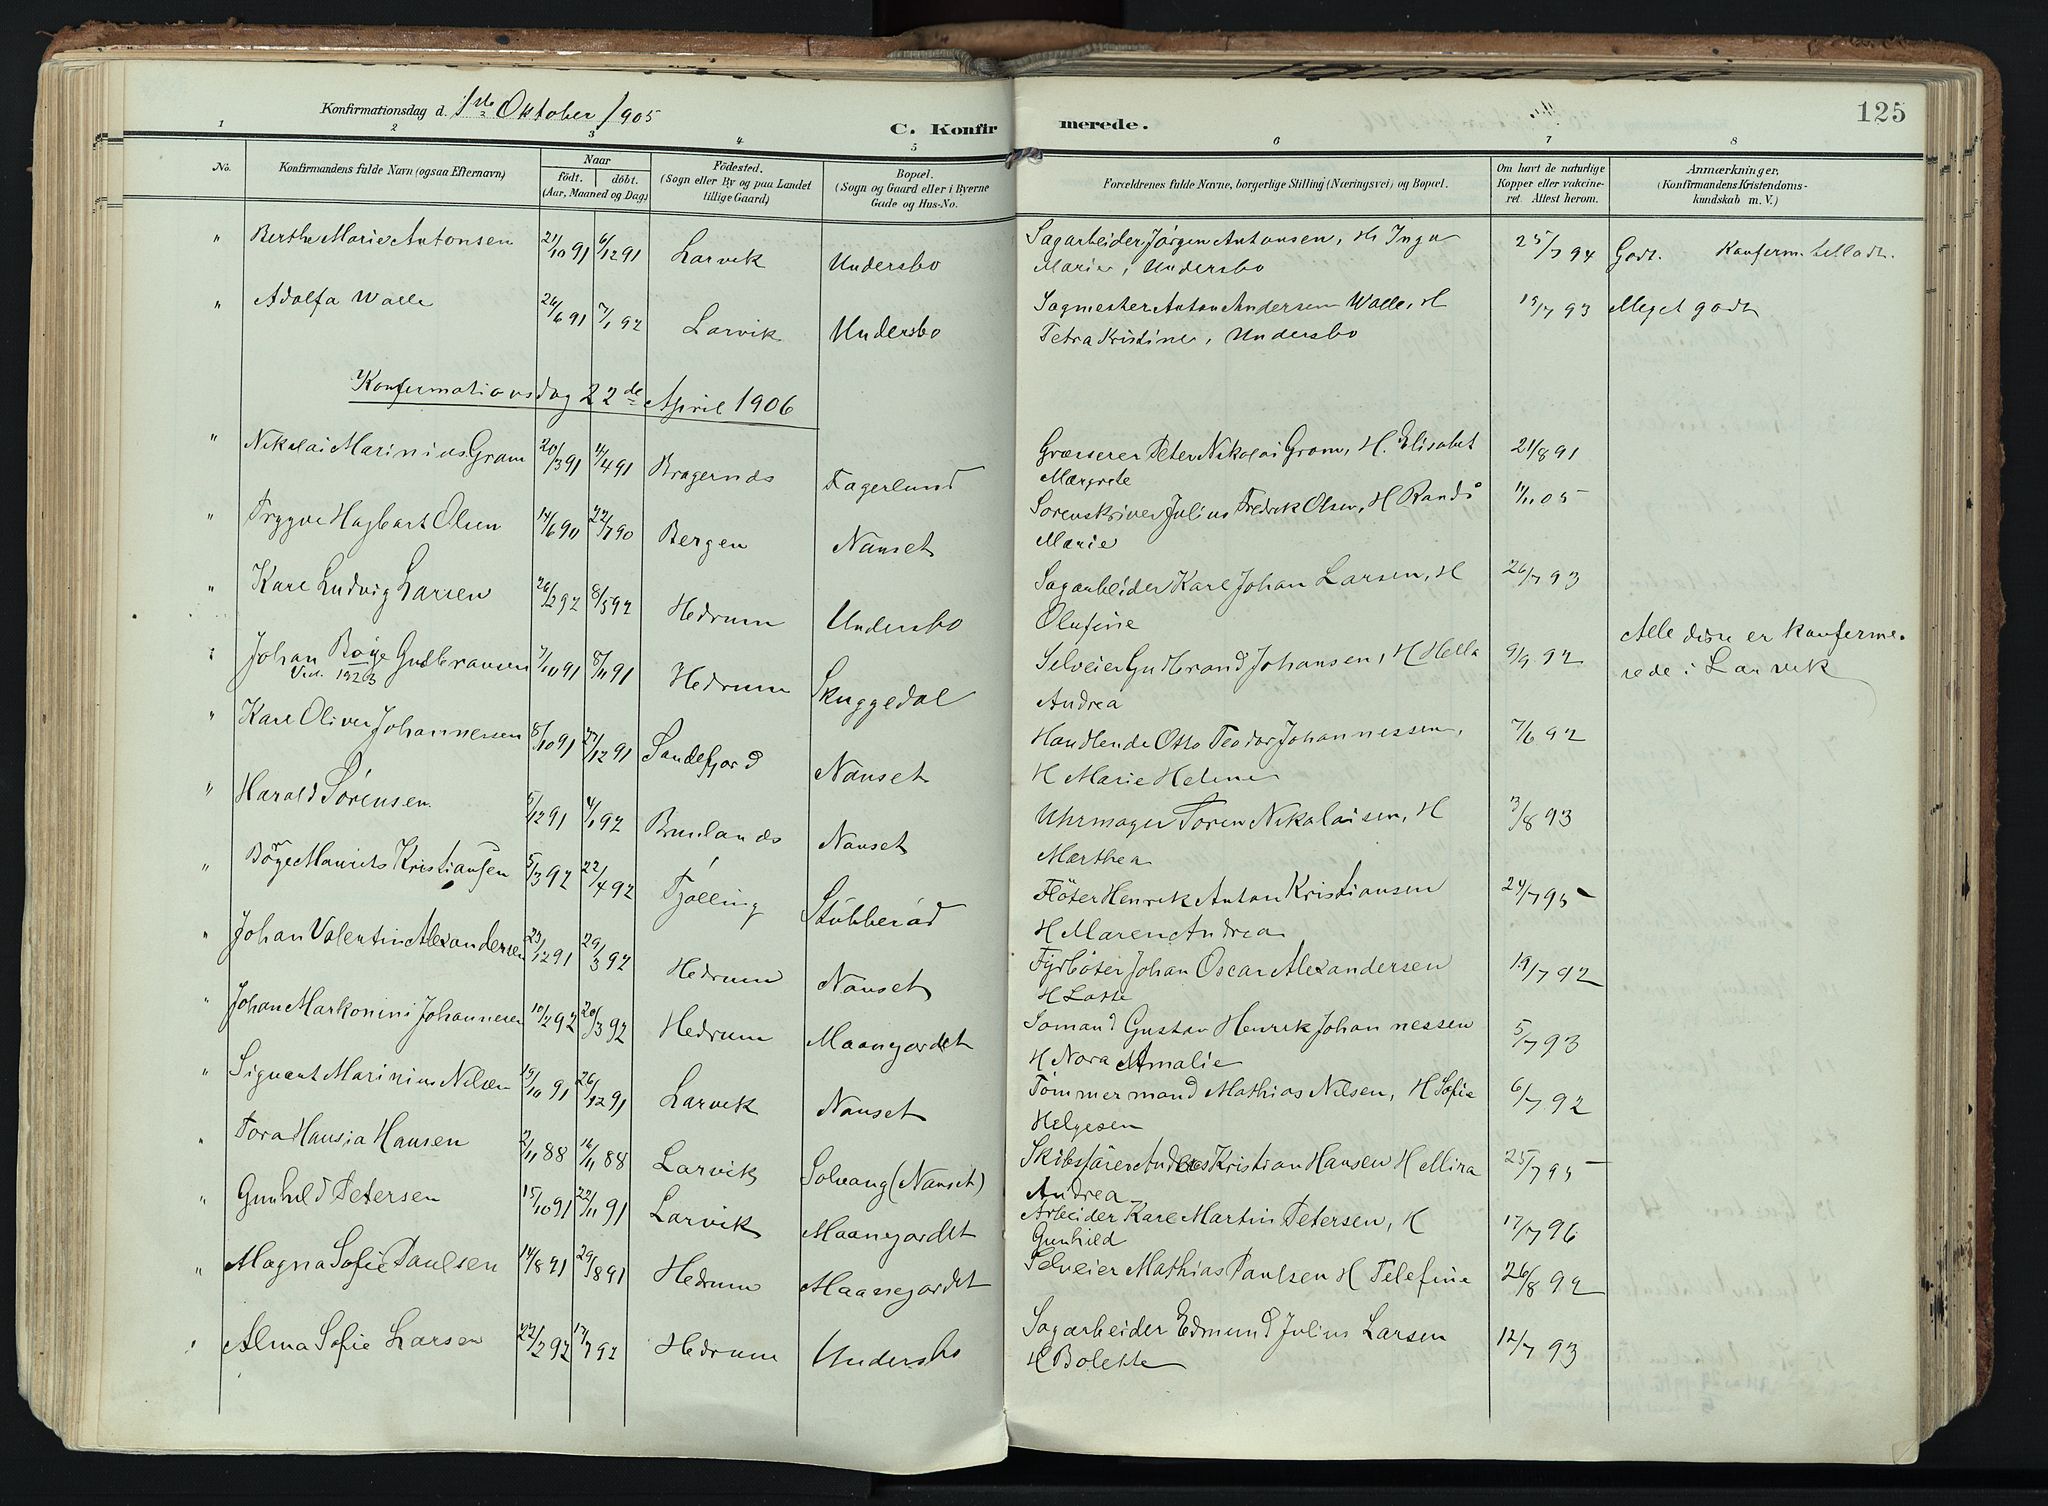 Konfirmationsdag d. 1ste Oktober 1905
C. Konfirmerede.
125
1 2 3 4 5 6 7 8
No.
Konfirmandens fulde Navn (ogsaa Efternavn)
Naar
födt. döbt.
(Aar, Maaned og Dag)
Födested.
(Sogn eller By og paa Landet
tillige Gaard)
Bopæl.
(Sogn og Gaard eller i Byerne
Gade og Hus-No.
Forældrenes fulde Navne, borgerlige Stilling (Næringsvei) og Bopæl.
Om havt de naturlige
Kopper eller vakcine-
ret. Attest herom.
Anmærkninger,
(Konfirmandens Kristendoms-
kundskab m. V.)
" Berthe Marie Antonsen 21/10 91 6/12 91 Larvik Undersbo Sagarbeider Jörgen Antonsen, H Inga
Marie, Undersbo 25/7 94 Godt. Konferm. tilladt.
" Adolfa Walle 26/6 91 7/1 92 Larvik Undersbo Sagmester Anton Andersen Walle, H
Petra Kristine, Undersbo 19/7 93 Meget godt
Konfirmationsdag 22de April 1906
" Nikolai Marinius Gram 20/3 91 /4 91 Bragernæs Fagerlund Peter Nikolai Gram, H. Elisabet
Margrete 21/8 91
" Trygve Hagbart Olsen 14/6 90 27/7 90 Bergen Nanset Sorenskriver Julius Fredrik Olsen, H Randi
Marie 05
" Karl Ludvig Larsen 26/2 92 8/5 92 Hedrum Undersbo Sagarbeider Karl Johan Larsen, H
Olufine 26/7 93
" Johan Böge Gudbransen 7/10 91 8/11 91 Hedrum Skuggedal Selveier Gudbrand Johansen, H Hella
Vid. 1923
Andrea 9/9 92
Alle disse er konferme-
rede i Larvik
" Karl Oliver Johannessen 8/10 91 27/12 91 Sandefjord Nanset Handlende Otto Teodor Johannessen,
H Marie Helene 7/6 92
" Harald Sørensen 5/12 91 4/1 92 Brunlanæs Nanset Uhrmager Sören Nikolaisen, H
Marthea 3/8 93
" Böge Maurits Kristiansen 5/3 92 22/4 92 Tjölling Stubberöd Flöter Henrik Anton Kristiansen
H Maren Andrea 24/7 95
" Johan Valentin Alexandersen 23/12 91 29/3 92 Hedrum Nanset Fyrböter Johan Oscar Alexandersen
H Lotte 19/7 92
" Johan Markonini Johannesen 10/2 92 20/3 92 Hedrum Maanejordet Sömand Gustav Henrik Johannessen
H Nora Amalie 5/7 93
" Marinius Nilsen 15/10 91 26/12 91 Larvik Nanset Tömmermand Mathias Nilsen, H Sofie
Helgesen 6/7 92
" Tora Hansia Hansen 2/11 88 16/11 88 Larvik Solvang (Nanset) Skibsförer Anders Kristian Hansen H Mina
Andrea 25/7 95
" Gunhild Petersen 15/10 91 22/11 91 Larvik Maanejordet Arbeider Karl Martin Petersen, H
Gunhild 17/7 96
" Magna Sofie Paulsen 14/8 91 29/8 91 Hedrum Maanejordet Selveier Mathias Paulsen H Telefine 26/8 92
" Alma Sofie Larsen 22/2 92 17/7 92 Hedrum Undersbo Sagarbeider Edmund Julius Larsen
H Bolette 12/7 93